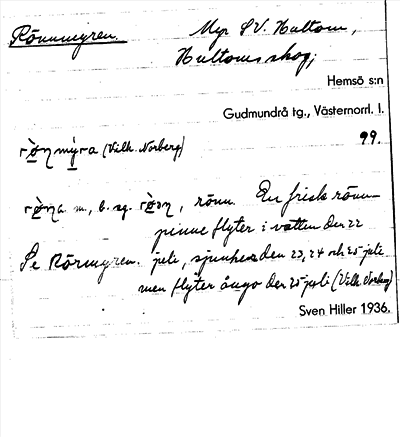 Rönnmyren. Myr SV. Hultom,
Hultoms skog;
Hemsö s:n
Gudmundrå tg., Västernorrl. l.
99.
(Vilh. Norberg)
rönn. En frisk rönn-
pinne flyter i vatten den 22
Se Rörmyren. juli, sjunker den 23, 24 och 25 juli
men flyter ånyo den 25 juli (Vilh. Norberg)
Sven Hiller 1936.